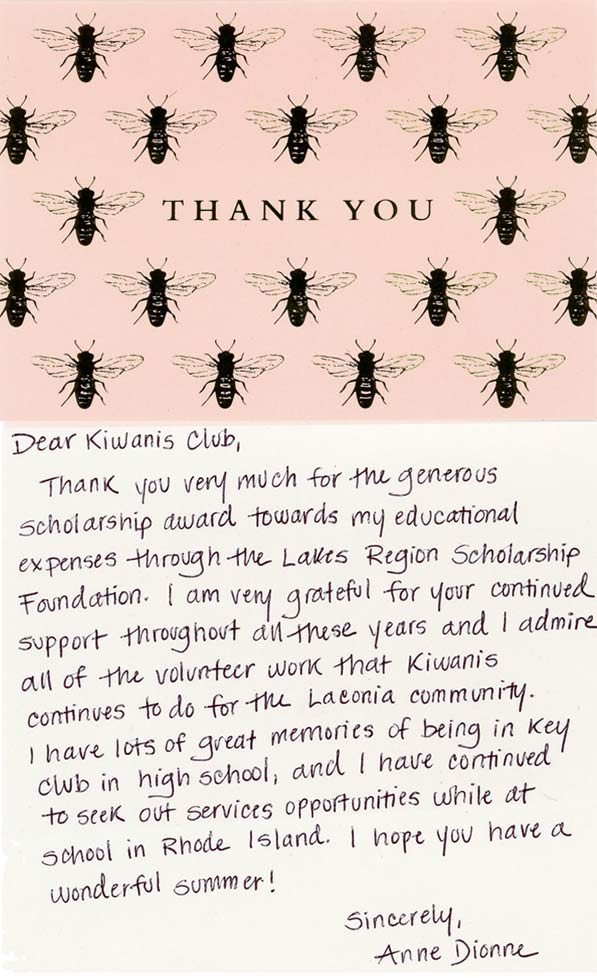 THANK YOU
Dear Kiwanis Club,
Thank you very much for the generous
scholarship award towards my educational
expenses through the Lakes Region Scholarship
Foundation. I am very grateful for your continued
support throughout all these years and I admire
all of the volunteer work that Kiwanis
continues to do for the Laconia community.
I have lots of great memories of being in Key
Club in high school, and I have continued
to seek out services opportunities while at
school in Rhode Island. I hope you have a
wonderful summer!
Sincerely,
Anne Dionne